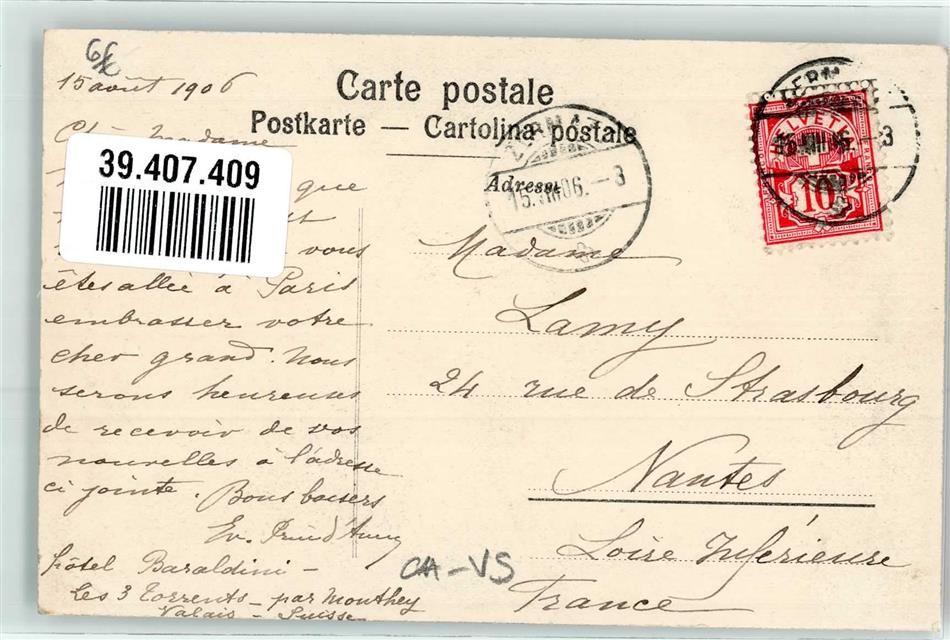 66
15 août 1906
Carte postale
Postkarte — Cartolina postale
Adresse
ZERMATT
15.VIII.06.–3
HELVETIA
10
39.407.409
Madame
que
vous
êtes allée à Paris
embrasser votre
cher grand. Nous
serons heureuses
de recevoir de vos
nouvelles à l'adresse
ci jointe. Bons baisers
Ev.
hôtel Baraldini –
Les 3 Torrents – par Monthey
Valais – Suisse
Madame
Lamy
24 rue de Strasbourg
Nantes
Loire Inférieure
France
CH–VS